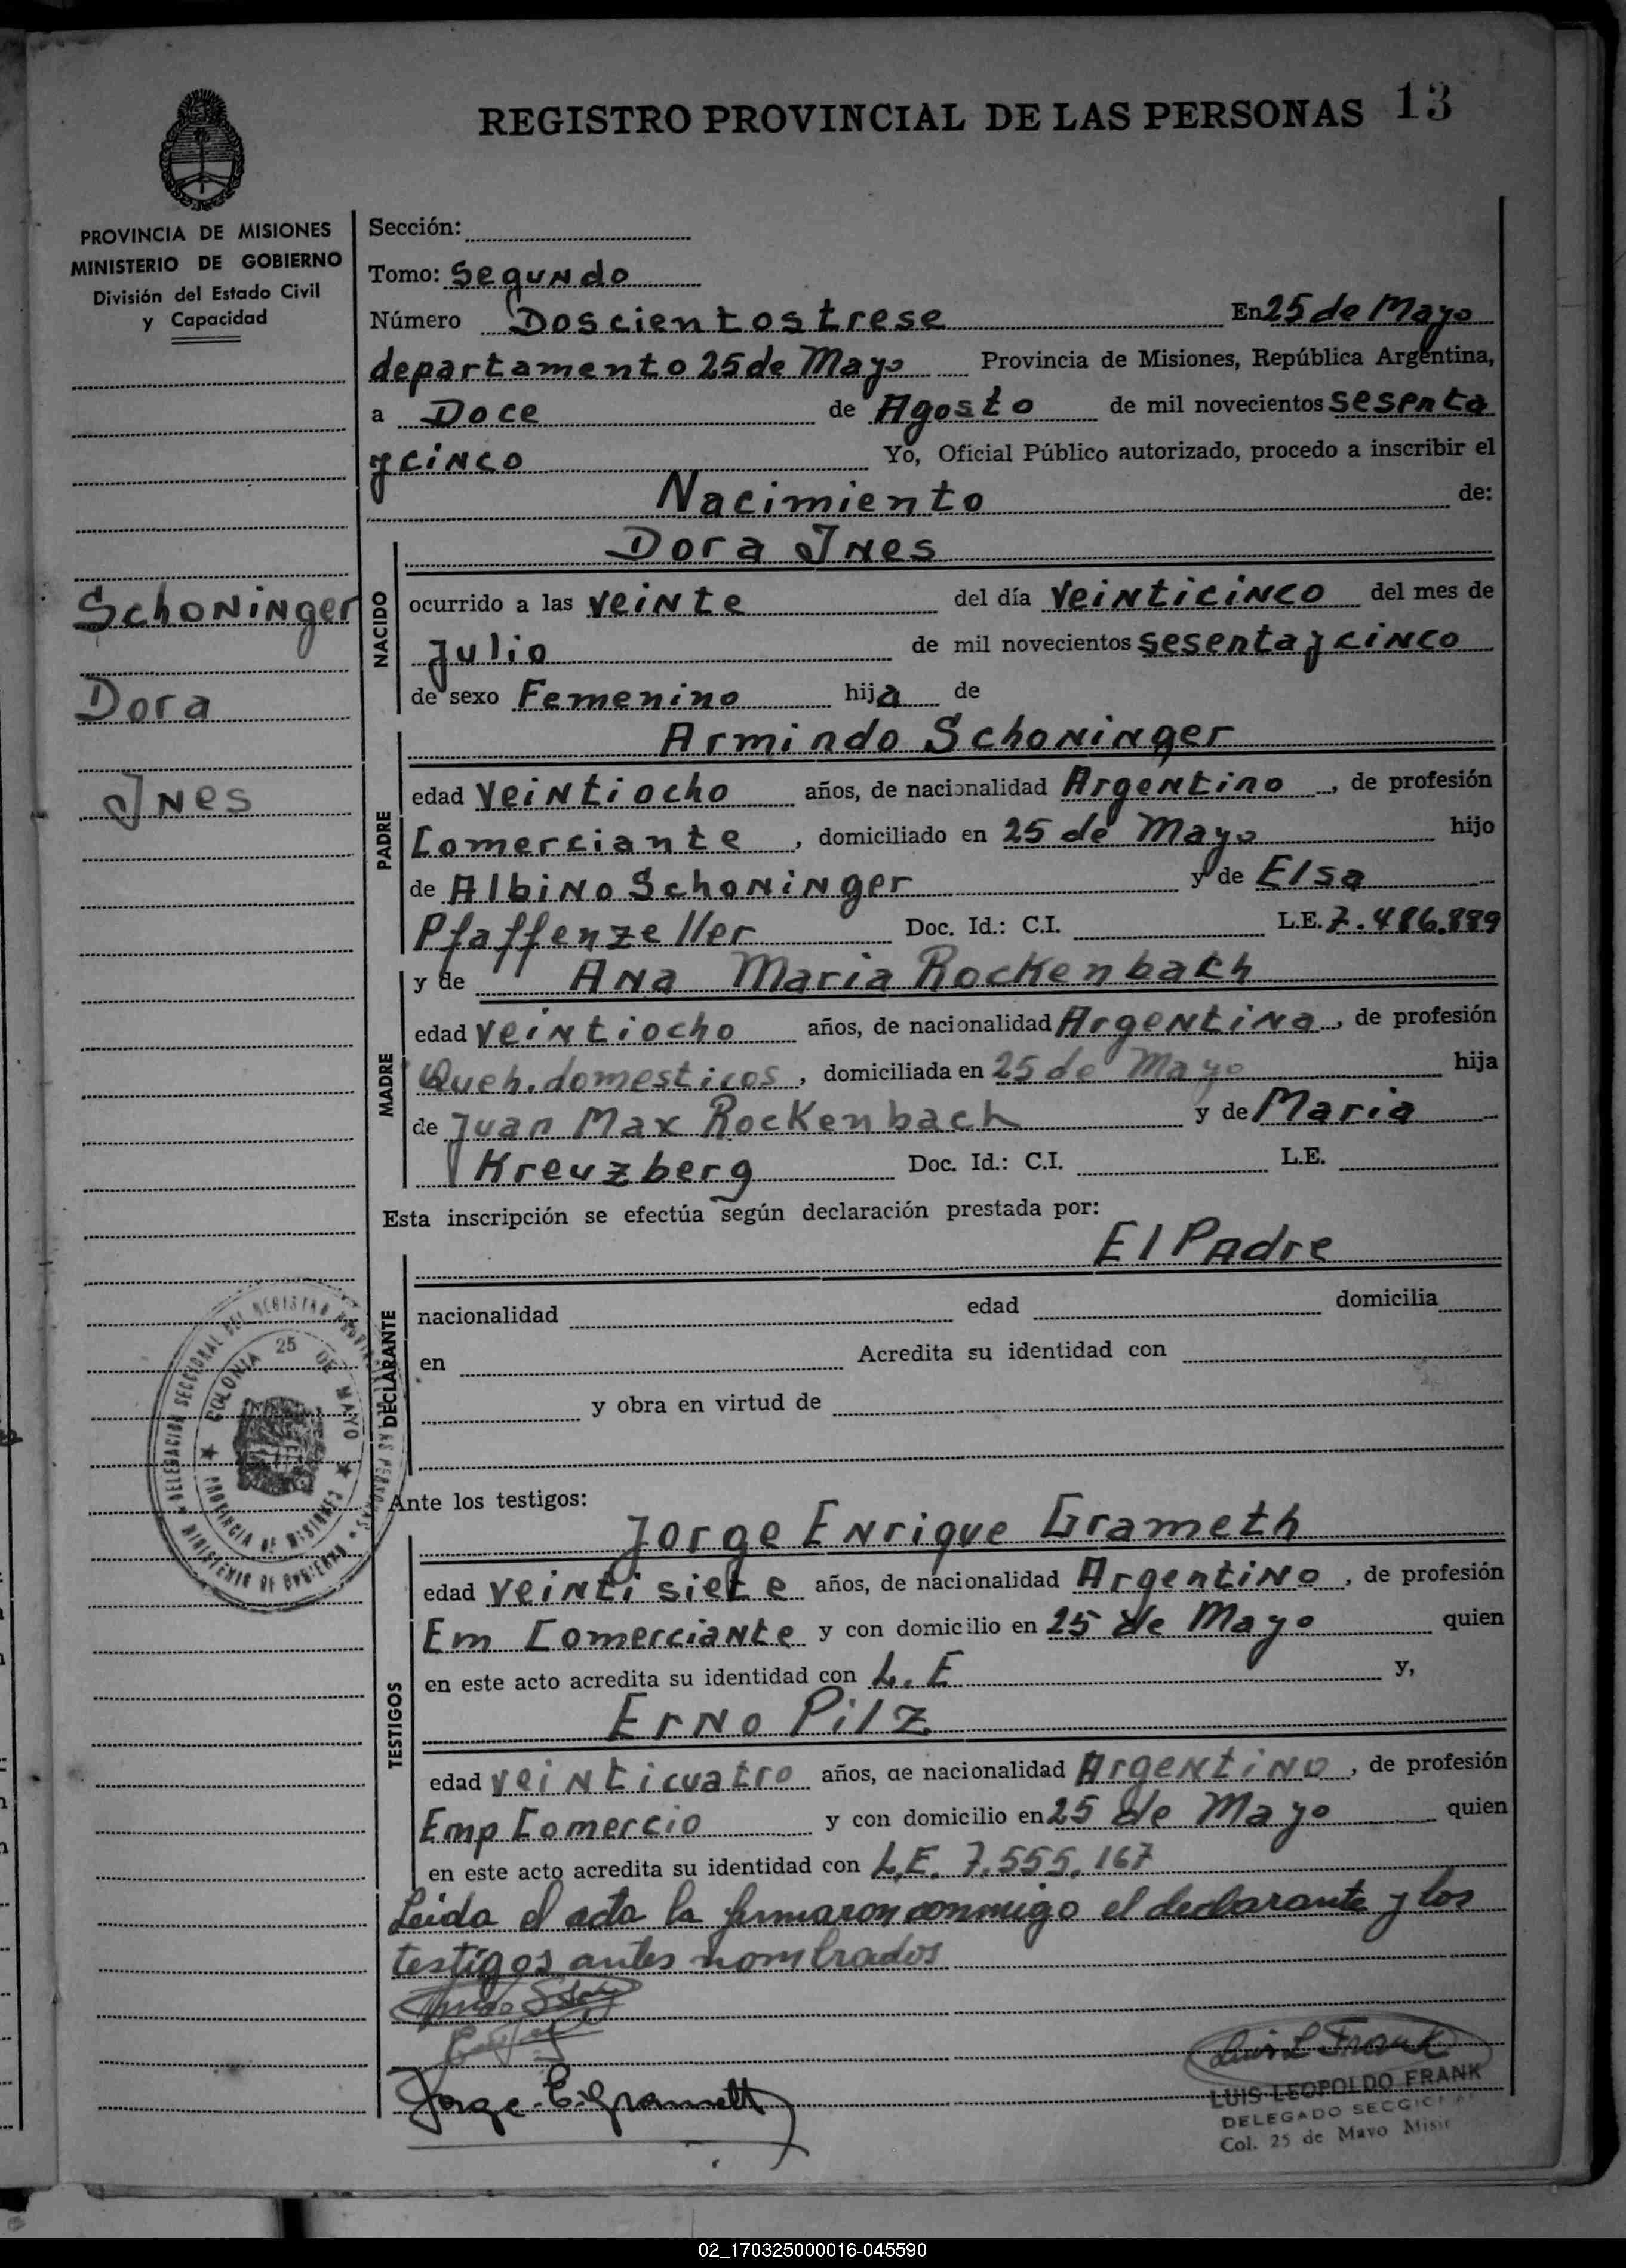 REGISTRO PROVINCIAL DE LAS PERSONAS 13
PROVINCIA DE MISIONES
MINISTERIO DE GOBIERNO
División del Estado Civil
y Capacidad
Schoninger
Dora
Ines
Sección:
Tomo: Segundo
Número Doscientos trese En 25 de Mayo
departamento 25 de Mayo Provincia de Misiones, República Argentina,
a Doce de Agosto de mil novecientos sesenta
y cinco Yo, Oficial Público autorizado, procedo a inscribir el
Nacimiento de:
NACIDO
Dora Ines
ocurrido a las veinte del día veinticinco del mes de
Julio de mil novecientos sesenta y cinco
de sexo Femenino hija de
PADRE
Armindo Schoninger
edad veintiocho años, de nacionalidad Argentino, de profesión
Comerciante, domiciliado en 25 de Mayo hijo
de Albino Schoninger y de Elsa
Pfaffenzeller Doc. Id.: C.I. L.E. 7.486.889
MADRE
y de Ana Maria Rockenbach
edad veintiocho años, de nacionalidad Argentina, de profesión
Queh. domesticos, domiciliada en 25 de Mayo hija
de Juan Max Rockenbach y de Maria
Kreuzberg Doc. Id.: C.I. L.E.
Esta inscripción se efectúa según declaración prestada por:
El Padre
DECLARANTE
nacionalidad edad domicilia
en Acredita su identidad con
y obra en virtud de
DELEGACION SECCIONAL DEL REGISTRO
COLONIA 25 DE MAYO
PROVINCIA DE MISIONES
MINISTERIO DE GOBIERNO
Ante los testigos:
TESTIGOS
Jorge Enrique Grameth
edad veinti siete años, de nacionalidad Argentino, de profesión
Em Comerciante y con domicilio en 25 de Mayo quien
en este acto acredita su identidad con L.E y,
Erno Pilz
edad veinticuatro años, de nacionalidad Argentino, de profesión
Emp Comercio y con domicilio en 25 de Mayo quien
en este acto acredita su identidad con L.E. 7.555.167
Leida el acta la firmaron conmigo el declarante y los
testigos antes nombrados
Jorge E. Grameth
Luis L Frank
LUIS LEOPOLDO FRANK
DELEGADO
Col. 25 de Mayo
02_170325000016-045590